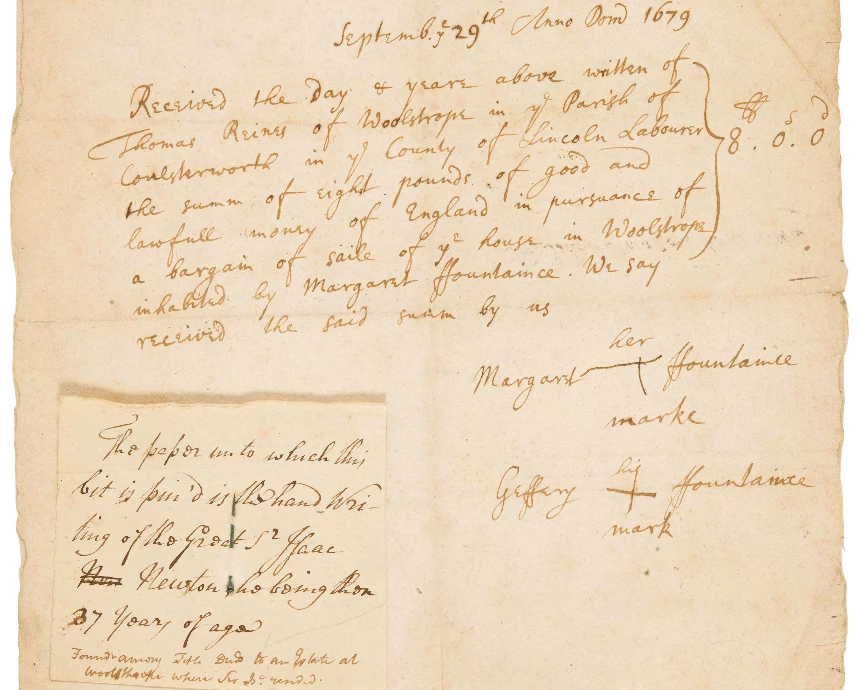 Septemb: yͤ 29th Anno Domͥ 1679
Received the Day & yeare above written of
Thomas Reines of Woolstrope in yͤ Parish of
Coulsterworth in yͤ County of Lincoln Labourer
the summ of eight pounds of good and
lawfull money of England in pursuance of
a bargain of saile of yͤ house in Woolstrope
inhabited by Margaret ffountaince. We say
received the said summ by us
ħ s d
8 . 0 . 0
her
Margaret ffountaince
marke
his
Geffery ffountaince
mark
The paper unto which this
bit is pin'd is the hand Wri-
ting of the Great Sr Isaac
Newton, he being then
37 Years of age
Found among Title Deeds to an Estate at
Woolsthorpe where Sir Is: resided.